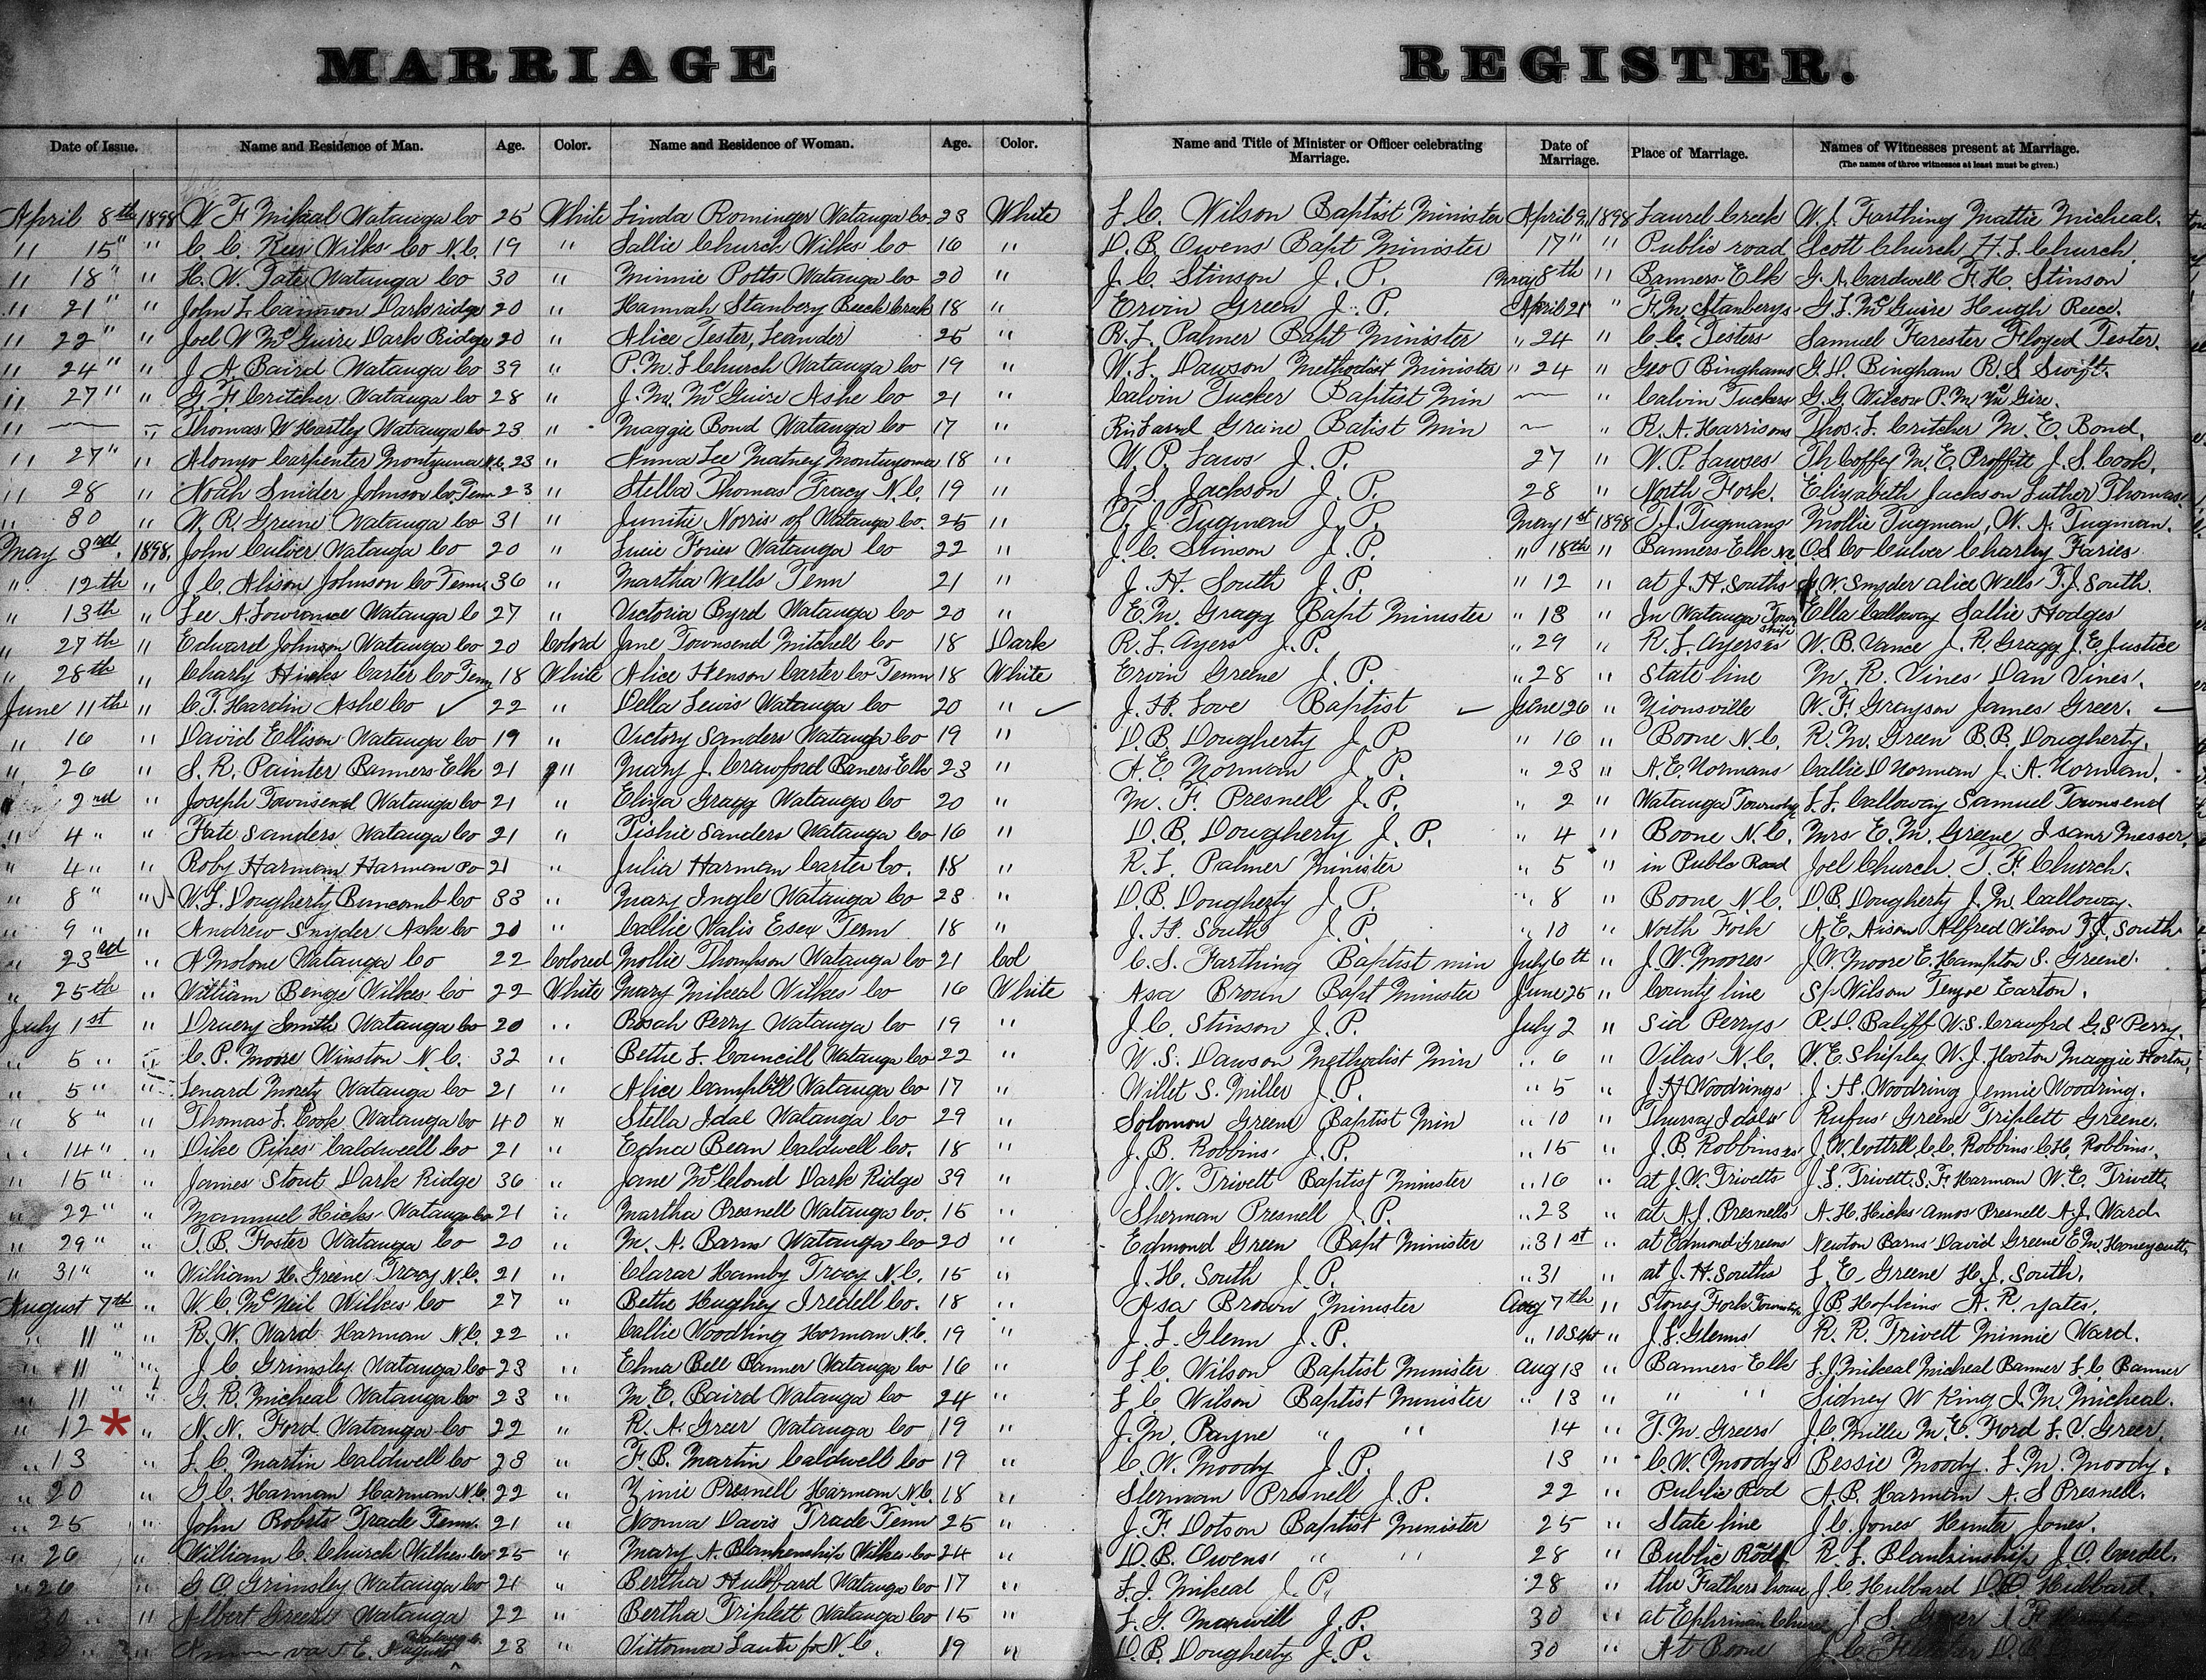 MARRIAGE REGISTER.
Date of Issue. Name and Residence of Man. Age. Color. Name and Residence of Woman. Age. Color. Name and Title of Minister or Officer celebrating Marriage. Date of Marriage. Place of Marriage. Names of Witnesses present at Marriage.
(The names of three witnesses at least must be given.)
April 8th 1898 W F Mikeal Watauga Co 25 White Linda Rominger Watauga Co 23 White L. C. Wilson Baptist Minister April 9, 1898 Laurel Creek W. J. Farthing Mattie Micheal.
" 15" " C. C. Wilks Co N.C. 19 " Sallie Church Wilks Co 16 " D. B. Owens Bapt Minister 17" " Public road Scott Church, H. L. Church.
" 18" " H. W. Tate Watauga Co 30 " Minnie Potts Watauga Co 20 " J. C. Stinson J. P. May 8th " Banners Elk G. A. Cardwell F. H. Stinson
" 21" " John L Cannon Darkridge 20 " Hannah Stanbery Beech Creek 18 " Ervin Green J. P. April 21 " F. M. Stanberys G. L. McGuire Hugh Reece.
" 22" " Joel W McGuire Dark Ridge 20 " Alice Tester, Leander 25 " R. L. Palmer Bapt Minister " 24 " C. C. Testers Samuel Farester Floyed Tester.
" 24" " J A. Baird Watauga Co 39 " P. M. L Church Watauga Co 19 " W. L. Dawson Methodist Minister " 24 " Geo T Binghams G. H. Bingham R. S Swift.
" 27" " G. F. Critcher Watauga Co 28 " J. M. McGuire Ashe Co 21 " Calvin Tucker Baptist Min " Calvin Tuckers G. G Wilcox P. M McGire.
" " Thomas W Hartley Watauga Co 23 " Maggie Bond Watauga Co 17 " Greene Batist Min " R. A. Harrisons Thos. L. Critcher M. E. Bond.
" 27" " Alonzo Carpenter Montezuma N.C. 23 " Anna Lee Matney Montuzoma 18 " W. P. Laws J. P. 27 " W. P. Lawses Th Coffey M. E. Proffitt J. S. Cook.
" 28 " Noah Snider Johnson Co, Tenn 23 " Stella Thomas Tracy N. C. 19 " J. S. Jackson J. P. 28 " North Fork. Elizabeth Jackson Luther Thomas
" 30 " W. R. Greene Watauga Co 31 " Junitie Norris of Watauga Co. 25 " T. J. Tugman J. P. May 1st 1898 T. J. Tugmans Mollie Tugman, W. A. Tugman.
May 3rd. 1898, John Culver Watauga Co 20 " Sucie Fories Watauga Co 22 " J. C. Stinson J. P. " 18th " Banners Elk N.C. Culver Charley Faries
" 12th " J. C. Alison Johnson Co Tenn. 36 " Martha Wells Tenn 21 " J. H. South J. P. " 12 " at J. H. Souths W. Snyder Alice Wells T. J. South.
" 13th " Lee A. Lowrance Watauga C 27 " Victoria Byrd Watauga Co 20 " E. M. Gragg Bapt Minister " 18 " In Watauga Town ship Ella Calloway Sallie Hodges
" 27th " Edward Johnson Watauga Co 20 Colord Jane Townsend Mitchell Co 18 Dark R. L. Ayers J. P. " 29 " R. L. Ayerses W. B. Vance J. R. Gragg J. E. Justice
" 28th " Charly Hicks Carter Co Tenn 18 White Alice Henson Carter Co Tenn 18 White Ervin Greene J. P. " 28 " State line M. R. Vines Dan Vines.
June 11th " C. T. Hardin Ashe Co 22 " Della Lewis Watauga Co 20 " J. H. Love Baptist June 26 " Zionsville W. F. Grayson James Greer.
" 16 " David Ellison Watauga Co 19 " Victory Sanders Watauga Co 19 " D. B. Dougherty J. P. " 16 " Boone N. C. R. M. Green B. B. Dougherty.
" 26 " S. R. Painter Banners Elk 21 " Mary J. Crawford Baners Elk 23 " A. E. Norman J. P. " 23 " A. E. Normans Callie D Norman J. A. Norman.
" 2nd " Joseph Townsend Watauga Co 21 " Eliza Gragg Watauga Co 20 " M. F. Presnell J. P. " 2 " Watauga Township L. L. Calloway Samuel Townsend
" 4 " " Fate Sanders Watauga Co 21 " Tishie Sanders Watauga Co 16 " D. B. Dougherty J. P. " 4 " Boone N. C. Mrs E. M. Greene Messer.
" 4 " " Roby Harman Harman Po 21 " Julia Harman Carter Co. 18 " R. L. Palmer Minister " 5 " in Publc Road Joel Church. T. F. Church.
" 8 " " W. L. Dougherty Buncomb Co 33 " Mary Ingle Watauga Co 23 " D. B. Dougherty J. P. " 8 " Boone N. C. D. B. Dougherty J. M. Calloway.
" 9 " " Andrew Snyder Ashe Co 20 " Callie Walis Tenn 18 " J. H. South J. P. " 10 " North Fork A. E. Aison Alfred Wilson T. J. South
" 23rd " A Molone Watauga Co 22 Colored Mollie Thompson Watauga Co 21 Col C. S. Farthing Baptist min July 6th " J. W. Moores J. W. Moore E. Hampton S. Greene.
" 25th " William Benge Wilkes Co 22 White Mary Mikeel Wilkes Co 16 White Asa Brown Bapt Minister June 25 " County line Wilson Earton.
July 1st " Druery Smith Watauga Co 20 " Rosah Perry Watauga Co 19 " J. C. Stinson J. P. July 2 " Sid Perrys R. D. Baliff W. S. Crawford G S Perry.
" 5 " " C. P. Moore Winston N. C. 32 " Bettie L Councill Watauga Co 22 " W. S. Dawson Methodist Min " 6 " Vilas N. C. W. E. Shipley W. J. Horton Maggie Horton,
" 5 " " Lenard Moretz Watauga Co 21 " Alice Campbill Watauga Co 17 " Willet S. Miller J. P. " 5 " J. H Woodrings J. H. Woodring Jennie Woodring.
" 8 " " Thomas L. Cook Watauga Co 40 " Stella Idal Watauga Co 29 " Solomon Greene Baptist Min " 10 " Rufus Greene Triplett Greene.
" 14 " " Dike Pipes Caldweell Co 21 " Edna Bean Caldwell Co. 18 " J. B. Robbins J. P. " 15 " J. B. Robbinses J. W. Cottrell C. C. Robbins C. H. Robbins.
" 15 " " James Stout Dark Ridge 36 " Jane McClond Dark Ridge 39 " J. W. Trivett Baptist Minister " 16 " at J. W. Trivetts J. L. Trivett, S. F. Harman W. E. Trivett,
" 22 " " Mammuel Hicks Watauga Co 21 " Martha Presnell Watauga Co. 15 " Sherman Presnell J. P. " 23 " at A. J. Presnells A. H. Hicks Amos Presnell A. J. Ward.
" 29 " " T. B. Foster Watauga Co 20 " M. A. Barns Watauga Co 20 " Edmond Green Bapt Minister " 31st " at Edmond Greens Newton Barns David Greene E. M. Honeycutt
" 31 " " William H. Greene Tracy N. C. 21 " Clarar Hamby Tracy N. C. 15 " J. H. South J. P. " 31 " at J. H. Souths L. E. Greene H. J. South.
August 7th " W. C. McNeil Wilkes Co 27 " Bettie Hughey Iredell Co. 18 " Asa Brown Minister Aug 7th " Stoney Fork Township J. B. Hopkins A. R. Yates.
" 11 " " R. W. Ward Harman N. C. 22 " Callie Woodring Harman N. C. 19 " J. L. Glenn J. P. " 10 Sept " J. L. Glenns R. R. Trivett Minnie Ward.
" 11 " " J. C. Grimsley Watauga Co 23 " Elma Bell Banner Watauga Co 16 " L. C. Wilson Baptist Minister Aug 13 " Banners Elk L. J. Mikeal Micheal Banner L. C. Banner
" 11 " " G. R. Micheal Watauga Co 23 " M. E. Baird Watauga Co 24 " L. C Wilson Baptist Minister " 13 " " " Sidney W King J. M. Micheal.
" 12 * " N. N. Ford Watauga Co 22 " R. A. Greer Watauga Co 19 " J. M. Payne " " 14 " T. M. Greers J. C. Miller M. E. Ford L. V. Greer.
" 13 " L. C. Martin Caldwell Co 23 " F. B. Martin Caldwell Co 19 " C. W. Moody J. P. 13 " C. W. Moodys Bessie Moody. L. M. Moody.
" 20 " G. C. Harman Harman N. C. 22 " Zinie Presnell Harman N. C. 18 " Sherman Presnell J. P. 22 " Public Rod A. B. Harman A. S Presnell.
" 25 " John Robrts Trade Tenn. 21 " Nooma Davis Trade Tenn 25 " J. F. Dotson Baptist Minister 25 " State line J. C. Jones Hunter Jones.
" 26 " William C. Church Wilkes Co 25 " Mary A. Blankenship Wilkes Co 24 " D. B. Owens " " 28 " Public Road R. L. Blankinship J. O. Cardel.
" 26 " G O. Grimsley Watauga Co 21 " Bertha Hubbard Watauga Co 17 " L. J. Mikeal J. P. 28 " the Fathers house J. C. Hubbard D. Hubbard
30 " " Albert Greene Watauga 22 " Bertha Triplett Watauga Co 15 " L. G. Maxwill J. P. 30 " at Ephriham Church J. S.
30 " 23 " N. C. 19 " D. B. Dougherty J. P. 30 " At Boone J. C. Fletcher D. B.